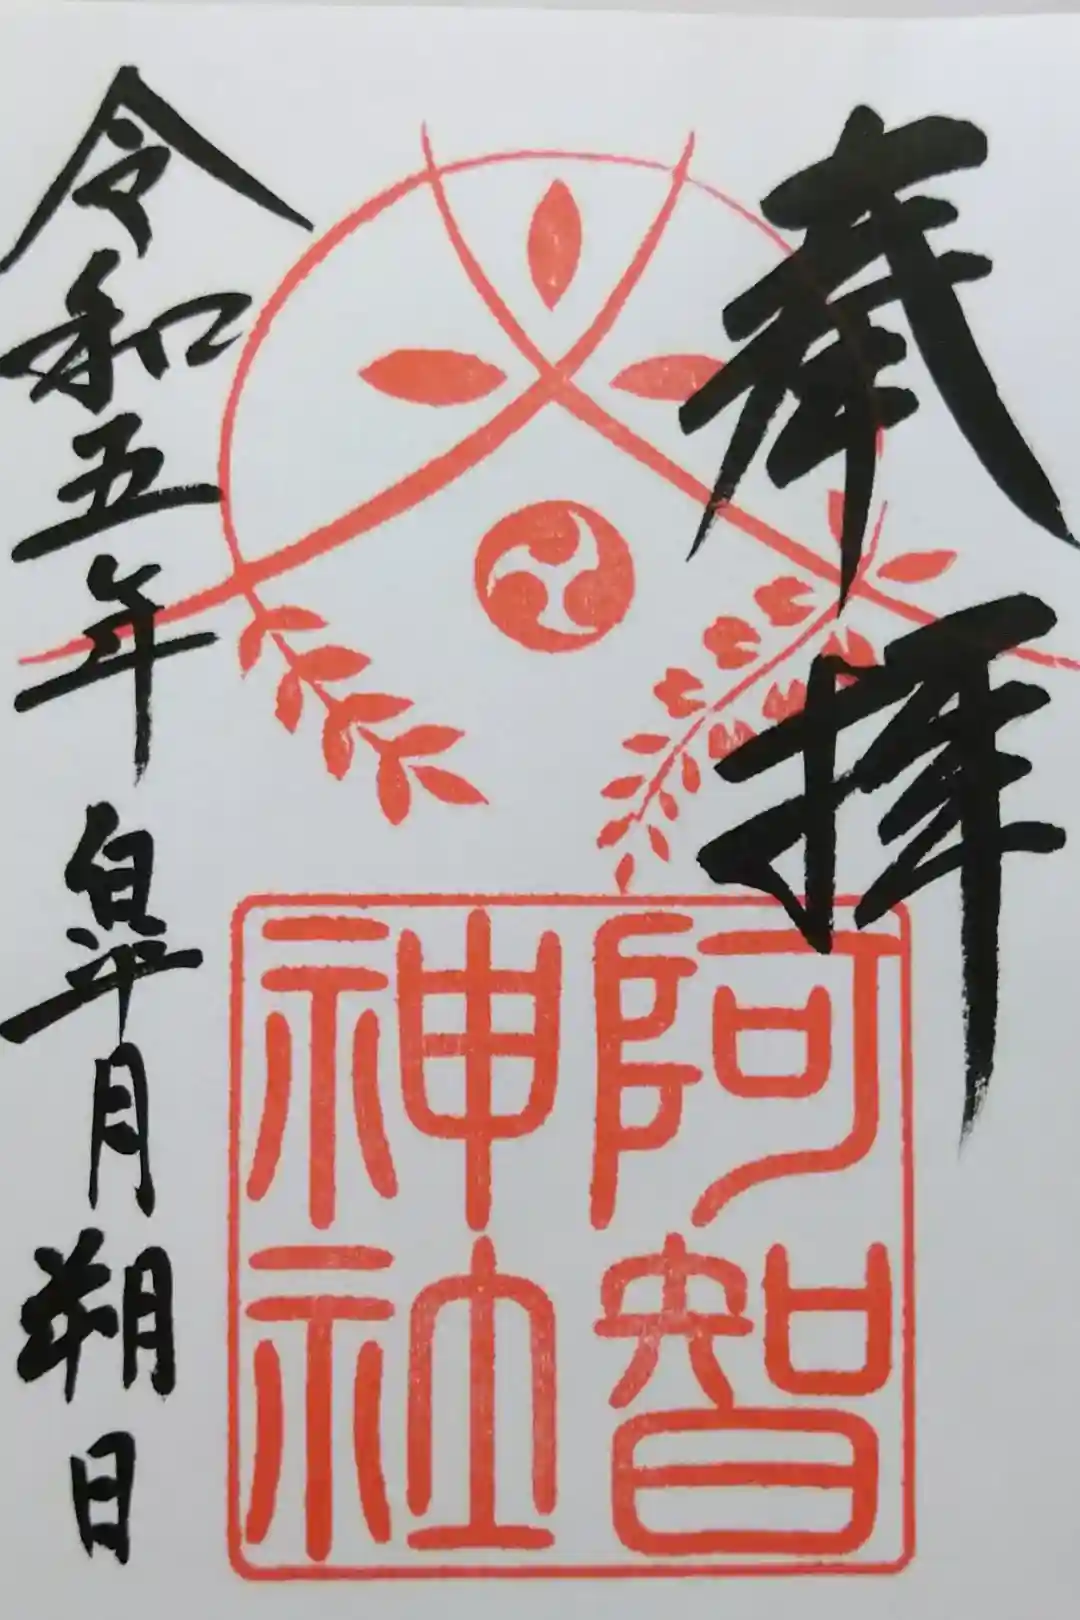 奉拝
阿智
神社
令和五年皐月朔日